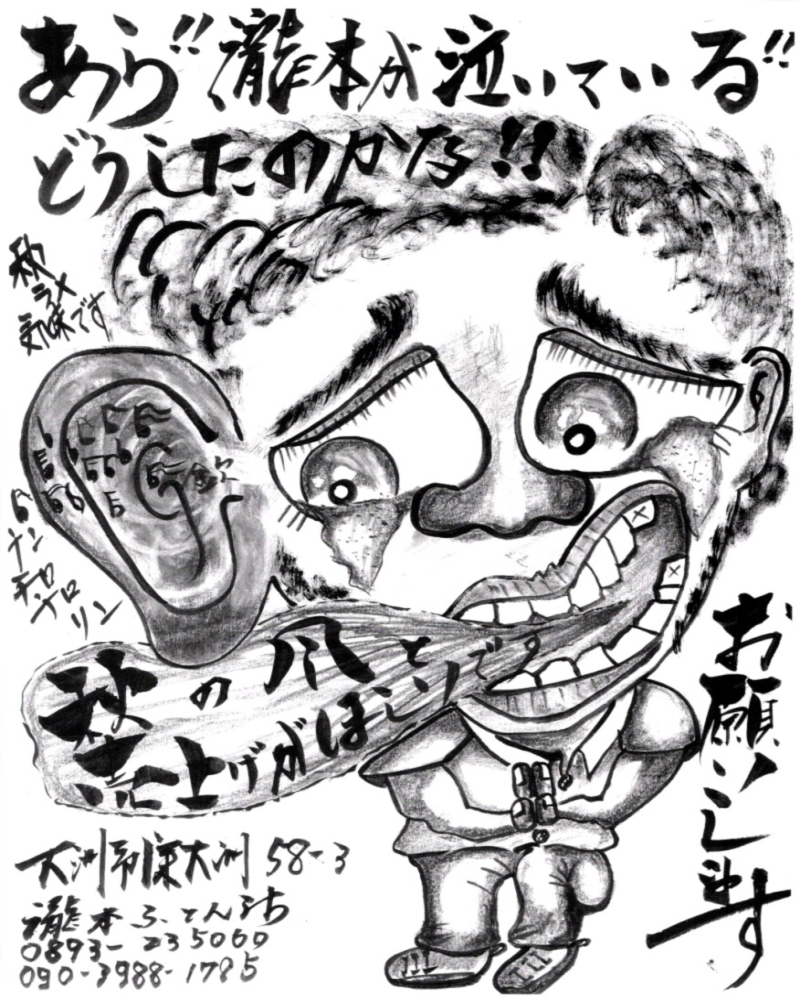 あら!!瀧本が泣いている!!
どうしたのかな!!
秋
ラメ
気味です
チン
チロ
リン
秋の風と
売上げがほしいです
お願いします
大洲市東大洲58-3
瀧本ふとんまち
0893-235060
090-3988-1785